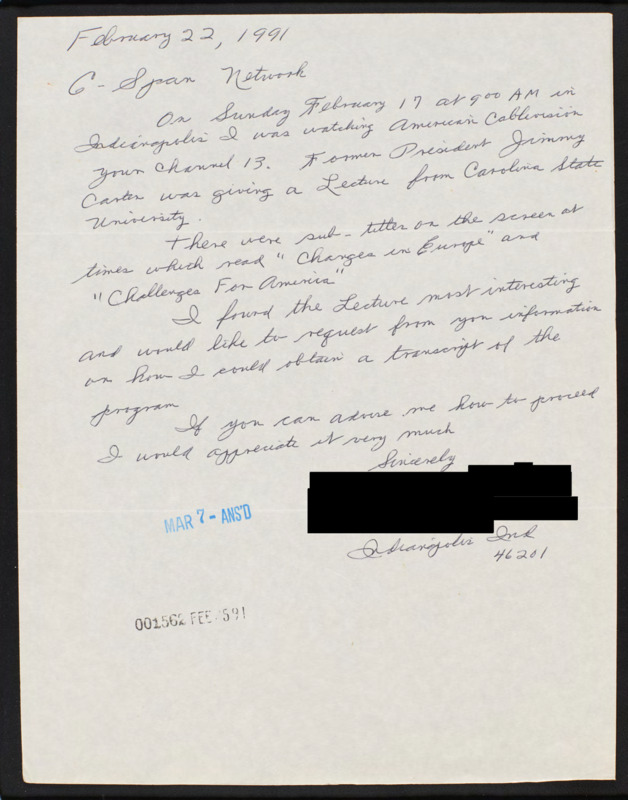 February 22, 1991
C-Span Network
On Sunday February 17 at 9:00 AM in
Indianapolis I was watching American Cablevision
your Channel 13. Former President Jimmy
Carter was giving a Lecture from Carolina State
University.
There were sub-titles on the screen at
times which read "Changes in Europe" and
"Challenges For America"
I found the Lecture most interesting
and would like to request from you information
on how I could obtain a transcript of the
program
If you can advise me how to proceed
I would appreciate it very much
Sincerely
Indianapolis Ind
46201
MAR 7 - ANS'D
001562 FEB 91